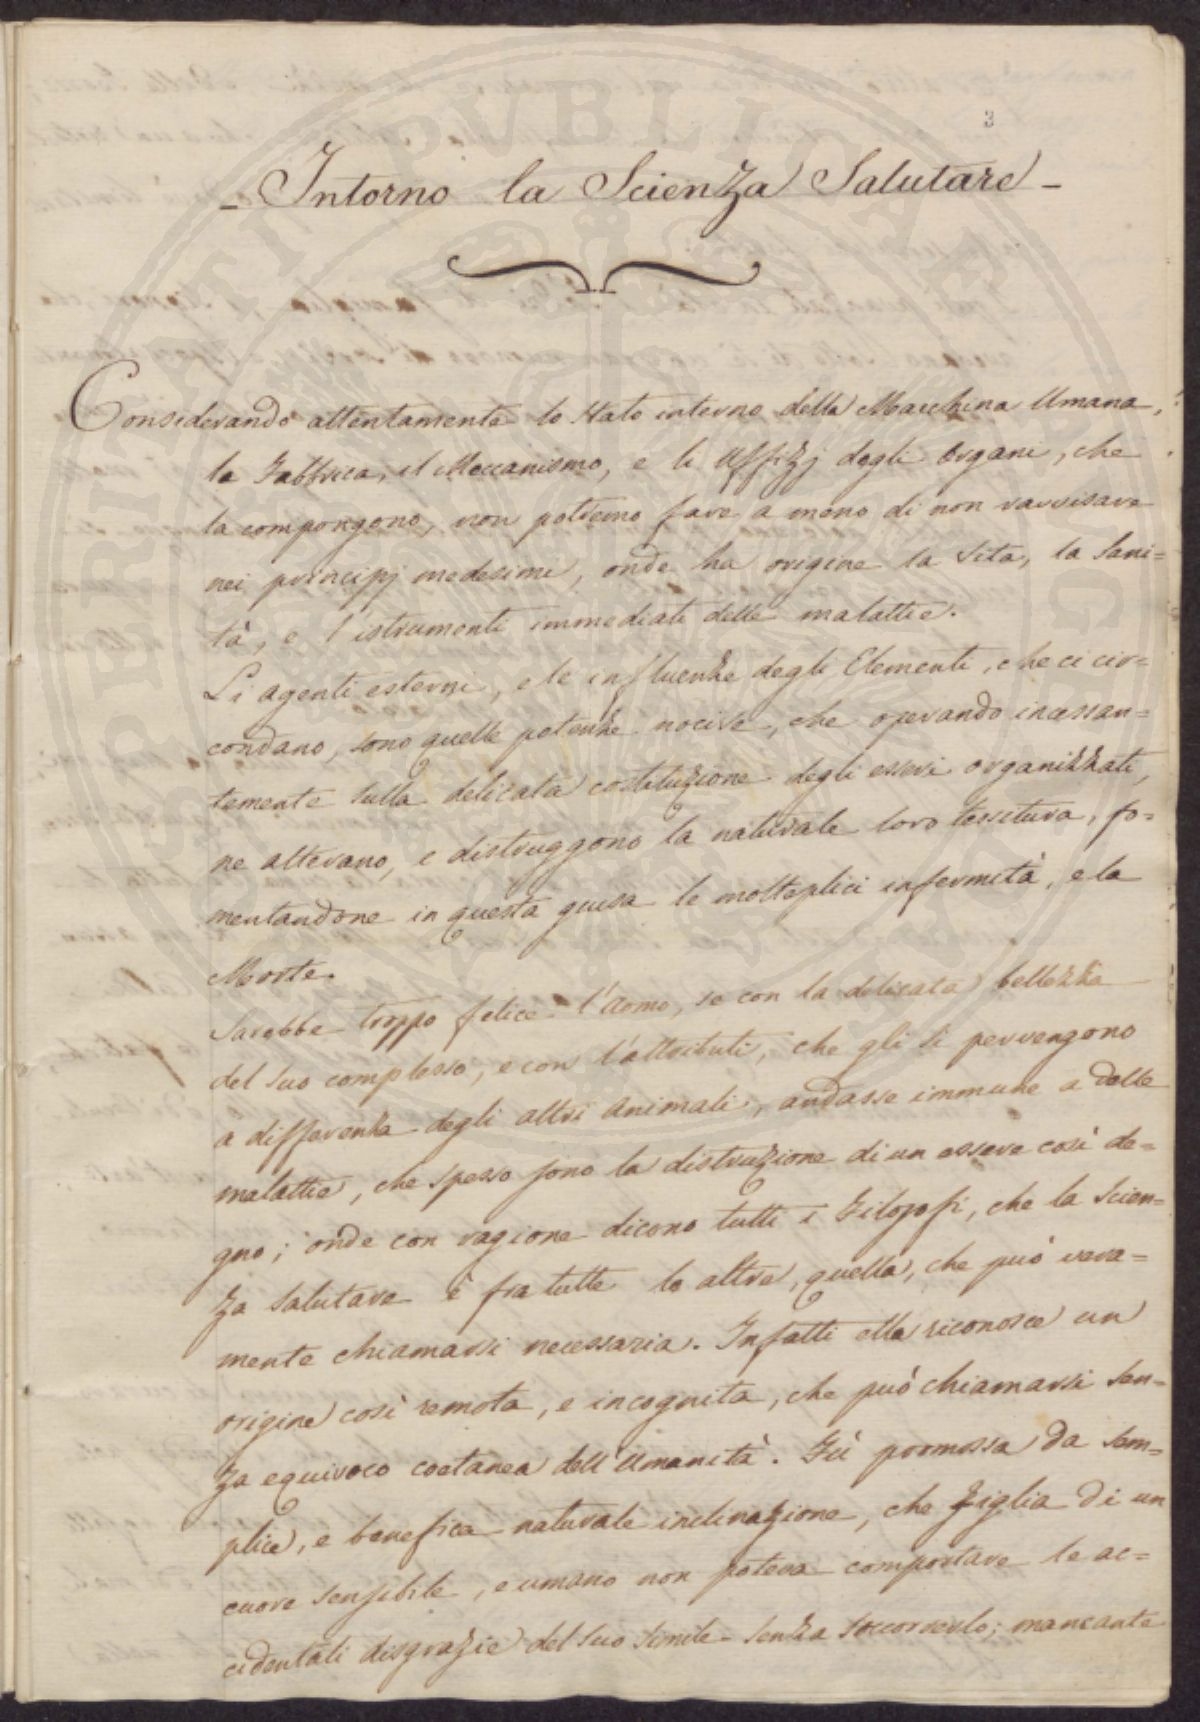 3
- Intorno la Scienza Salutare -
Considerando attentamente lo stato interno della Macchina Umana,
la Fabbrica, il Meccanismo, e li Uffizj degli Organi, che
la compongono, non potremo fare a meno di non ravvisare
nei principj medesimi, onde ha origine la Vita, la Sani=
tà, e l'istrumenti immediati delle malattie.
Li agenti esterni, e le influenze degli Elementi, che ci cir=
condano, sono quelle potenze nocive, che operando incessan=
temente sulla delicata costituzione degli esseri organizzati,
ne alterano, e distruggono la naturale loro tessitura, fo=
mentandone in questa guisa le molteplici infermità, e la
Morte.
Sarebbe troppo felice l'uomo, se con la delicata bellezza
del suo complesso, e con l'attributi, che gli si pervengono
a differenza degli altri Animali, andasse immune a delle
malattie, che spesso sono la distruzione di un essere così de=
gno; onde con ragione dicono tutti i Filosofi, che la Scien=
za Salutare è fra tutte le altre, quella, che può vera=
mente chiamarsi necessaria. Infatti ella riconosce un
origine così remota, e incognita, che può chiamarsi sen=
za equivoco coetanea dell'Umanità. Fù promossa da sem=
plice, e benefica naturale inclinazione, che figlia di un
cuore sensibile, e umano non poteva comportare le ac=
cidentali disgrazie del suo simile senza soccorrerlo; mancante
SPERITATI PVBLICAE AC